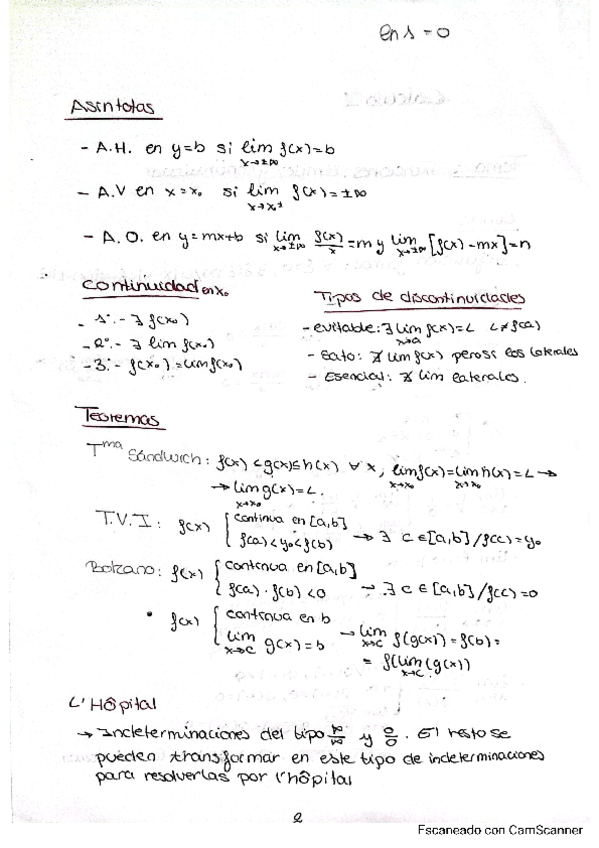 en 1 = 0
Asíntotas
- A.H. en y=b si lim f(x)=b
x→±∞
- A.V en x=x₀ si lim f(x)=±∞
x→x₀±
- A.O. en y=mx+b si lim f(x)/x = m y lim [f(x)-mx]=n
x→±∞ x→±∞
Continuidad en x₀
- 1º.- ∃ f(x₀)
- 2º.- ∃ lim f(x₀)
- 3º.- f(x₀) = lim f(x₀)
Tipos de discontinuidades
- evitable: ∃ lim f(x)=L L≠f(a)
x→a
- Salto: ∄ lim f(x) pero si los laterales
- Esencial: ∄ lim laterales.
Teoremas
Tᵐᵃ Sándwich: f(x)<g(x)≤h(x) ∀ x, lim f(x)=lim h(x)=L →
x→x₀ x→x₀
→ lim g(x)=L.
x→x₀
T.V.I: f(x) { continua en [a,b]
f(a)<y₀<f(b) → ∃ c ∈[a,b]/f(c)=y₀
Bolzano: f(x) { continua en [a,b]
f(a)·f(b)<0 → ∃ c ∈ [a,b]/f(c)=0
• f(x) { continua en b
lim g(x)=b → lim f(g(x))=f(b)=
x→c x→c
= f(lim(g(x))
x→c
L'Hôpital
→ Indeterminaciones del tipo ∞/∞ y 0/0. El resto se
pueden transformar en este tipo de indeterminaciones
para resolverlas por l'hôpital
2
Escaneado con CamScanner